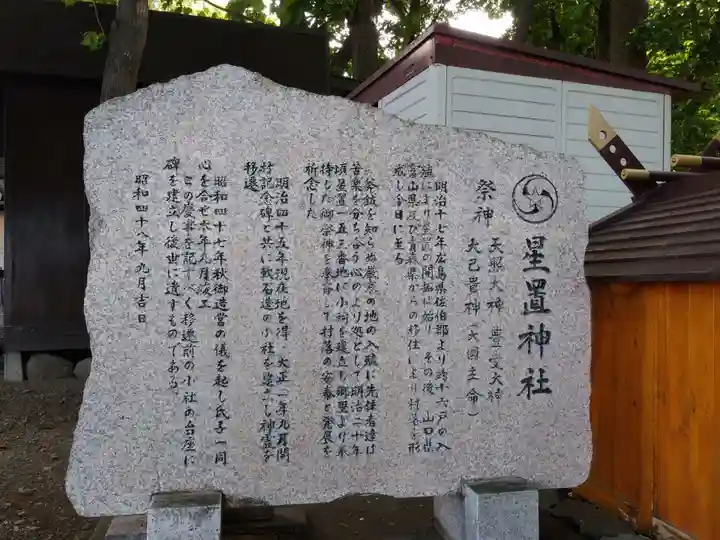 星置神社
祭神 天照大神 豊受大神
大己貴神（大国主命）
明治十七年広島県佐伯郡より諸十六戸の入
植により星置の開拓は始り その後 山口県
富山県及び青森県からの移住により村落を形
成し今日に至る
斧鉞を知らぬ厳寒の地の入殖に先住者達は
苦楽を分ち合う心のより処として明治二十年
頃星置一五三番地に小祠を建立し郷里より奉
持した御祭神を奉斎して村落の安泰と発展を
祈念した
明治四十五年現在地を得 大正一年九月開
村記念碑と共に軟石造の小社を建立し神霊を
移遷
昭和四十七年秋御造営の儀を起し氏子一同
心を合せ本年九月竣工
この慶事を記すべく移遷前の小社の台座に
碑を建立し後世に遺すものである。
昭和四十八年九月吉日